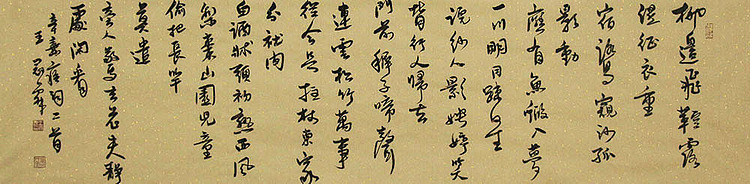 柳邊飛鞚露
濕征衣重
宿鷺窺沙孤
影動
應有魚蝦入夢
一川明月疎星
浣紗人影娉婷笑
背行人歸去
門前稚子啼聲
連雲松竹萬事
從今足拄杖東家
分社肉
白酒床頭初熟西風
梨棗山園兒童
偷把長竿
莫遣
旁人驚去老夫靜
處閑看
辛棄疾詞二首
王